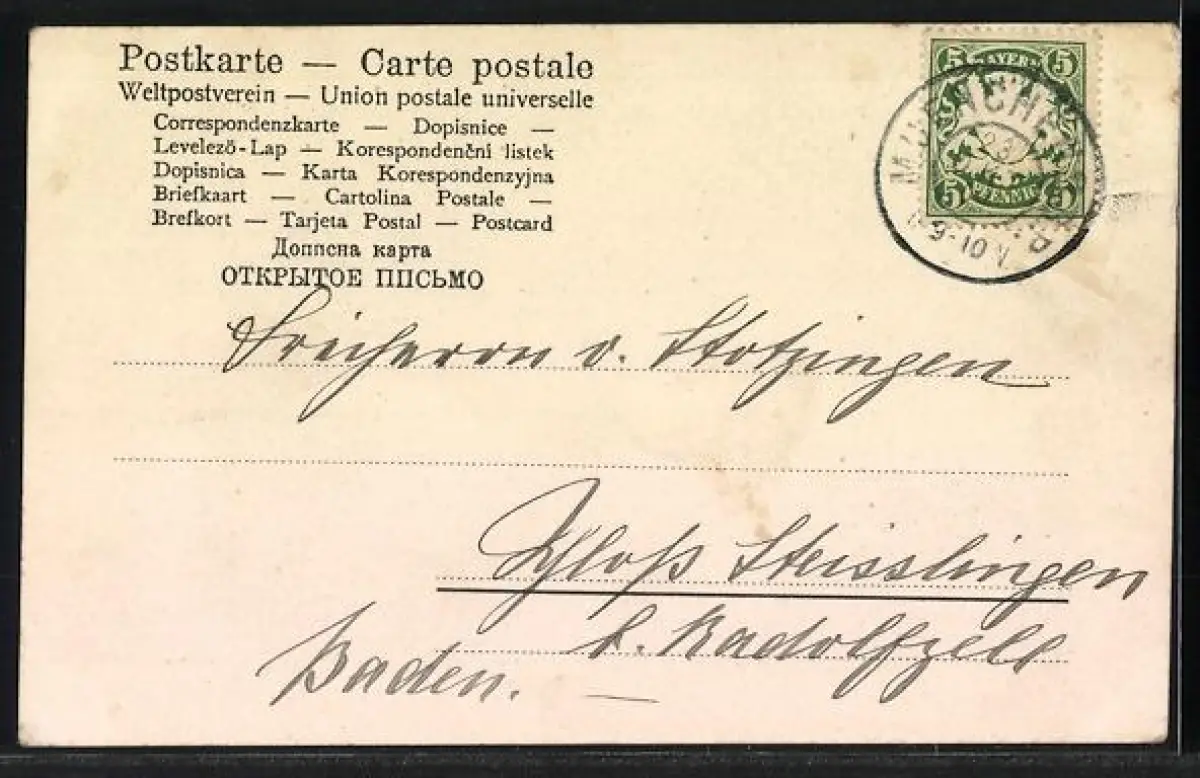 Postkarte — Carte postale
Weltpostverein — Union postale universelle
Correspondenzkarte — Dopisnice —
Levelező-Lap — Korespondenční listek
Dopisnica — Karta Korespondenzyjna
Briefkaart — Cartolina Postale —
Brefkort — Tarjeta Postal — Postcard
Доппсна карта
ОТКРЫТОЕ ППСЬМО
5 BAYERN 5
5 PFENNIG 5
MUENCHEN
23
9-10 V.
Freiherrn v. Stotzingen
Schloß Steisslingen
b. Radolfzell
Baden. —